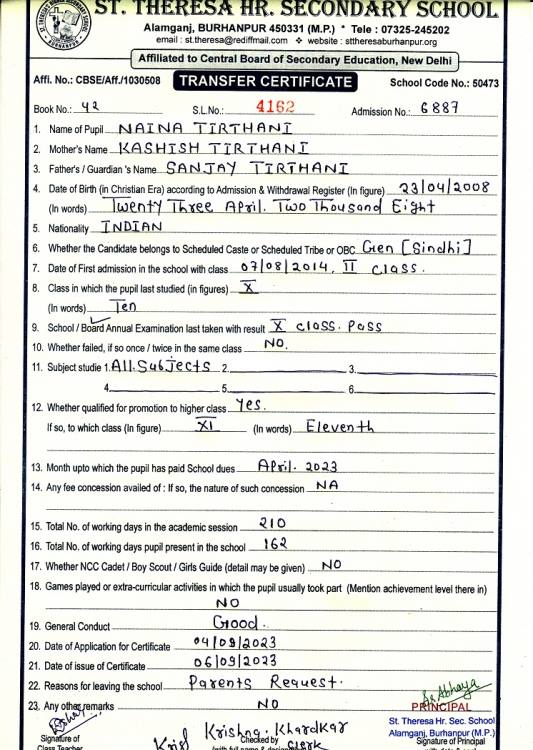 ST. THERESA HR. SECONDARY SCHOOL
Alamganj, BURHANPUR 450331 (M.P.) * Tele : 07325-245202
email : st.theresa@rediffmail.com ❖ website : sttheresaburhanpur.org
Affiliated to Central Board of Secondary Education, New Delhi
Affi. No.: CBSE/Aff./1030508 TRANSFER CERTIFICATE School Code No.: 50473
Book No.: 42 S.L.No.: 4162 Admission No.: 6887
1. Name of Pupil NAINA TIRTHANI
2. Mother's Name KASHISH TIRTHANI
3. Father's / Guardian 's Name SANJAY TIRTHANI
4. Date of Birth (in Christian Era) according to Admission & Withdrawal Register (In figure) 23/04/2008
(In words) Twenty Three April. Two Thousand Eight
5. Nationality INDIAN
6. Whether the Candidate belongs to Scheduled Caste or Scheduled Tribe or OBC Gen [Sindhi]
7. Date of First admission in the school with class 07/08/2014, II class.
8. Class in which the pupil last studied (in figures) X
(In words) Ten
9. School / Board Annual Examination last taken with result X class. Pass
10. Whether failed, if so once / twice in the same class NO.
11. Subject studie 1. All. Subjects 2. 3.
4. 5. 6.
12. Whether qualified for promotion to higher class Yes.
If so, to which class (In figure) XI (In words) Eleventh
13. Month upto which the pupil has paid School dues April. 2023
14. Any fee concession availed of : If so, the nature of such concession NA
15. Total No. of working days in the academic session 210
16. Total No. of working days pupil present in the school 162
17. Whether NCC Cadet / Boy Scout / Girls Guide (detail may be given) NO
18. Games played or extra-curricular activities in which the pupil usually took part (Mention achievement level there in)
NO
19. General Conduct Good.
20. Date of Application for Certificate 04/09/2023
21. Date of issue of Certificate 06/09/2023
22. Reasons for leaving the school Parents Request.
23. Any other remarks NO
Sr. Abhaya
PRINCIPAL
St. Theresa Hr. Sec. School
Alamganj, Burhanpur (M.P.)
Krishna. Khardkar
Signature of Checked by Signature of Principal
Class Teacher Clerk